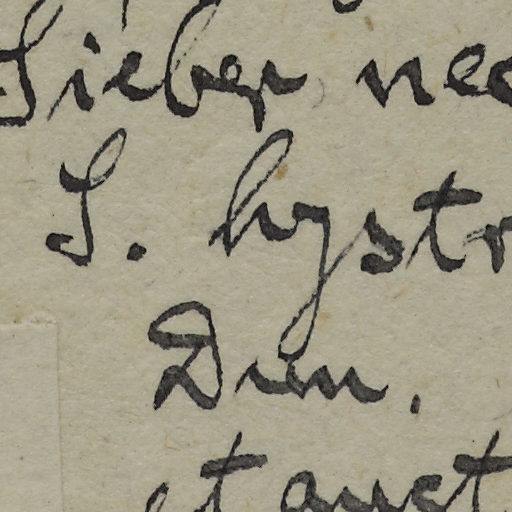 Sieber, nec
S. hystr
Dun.
et auct